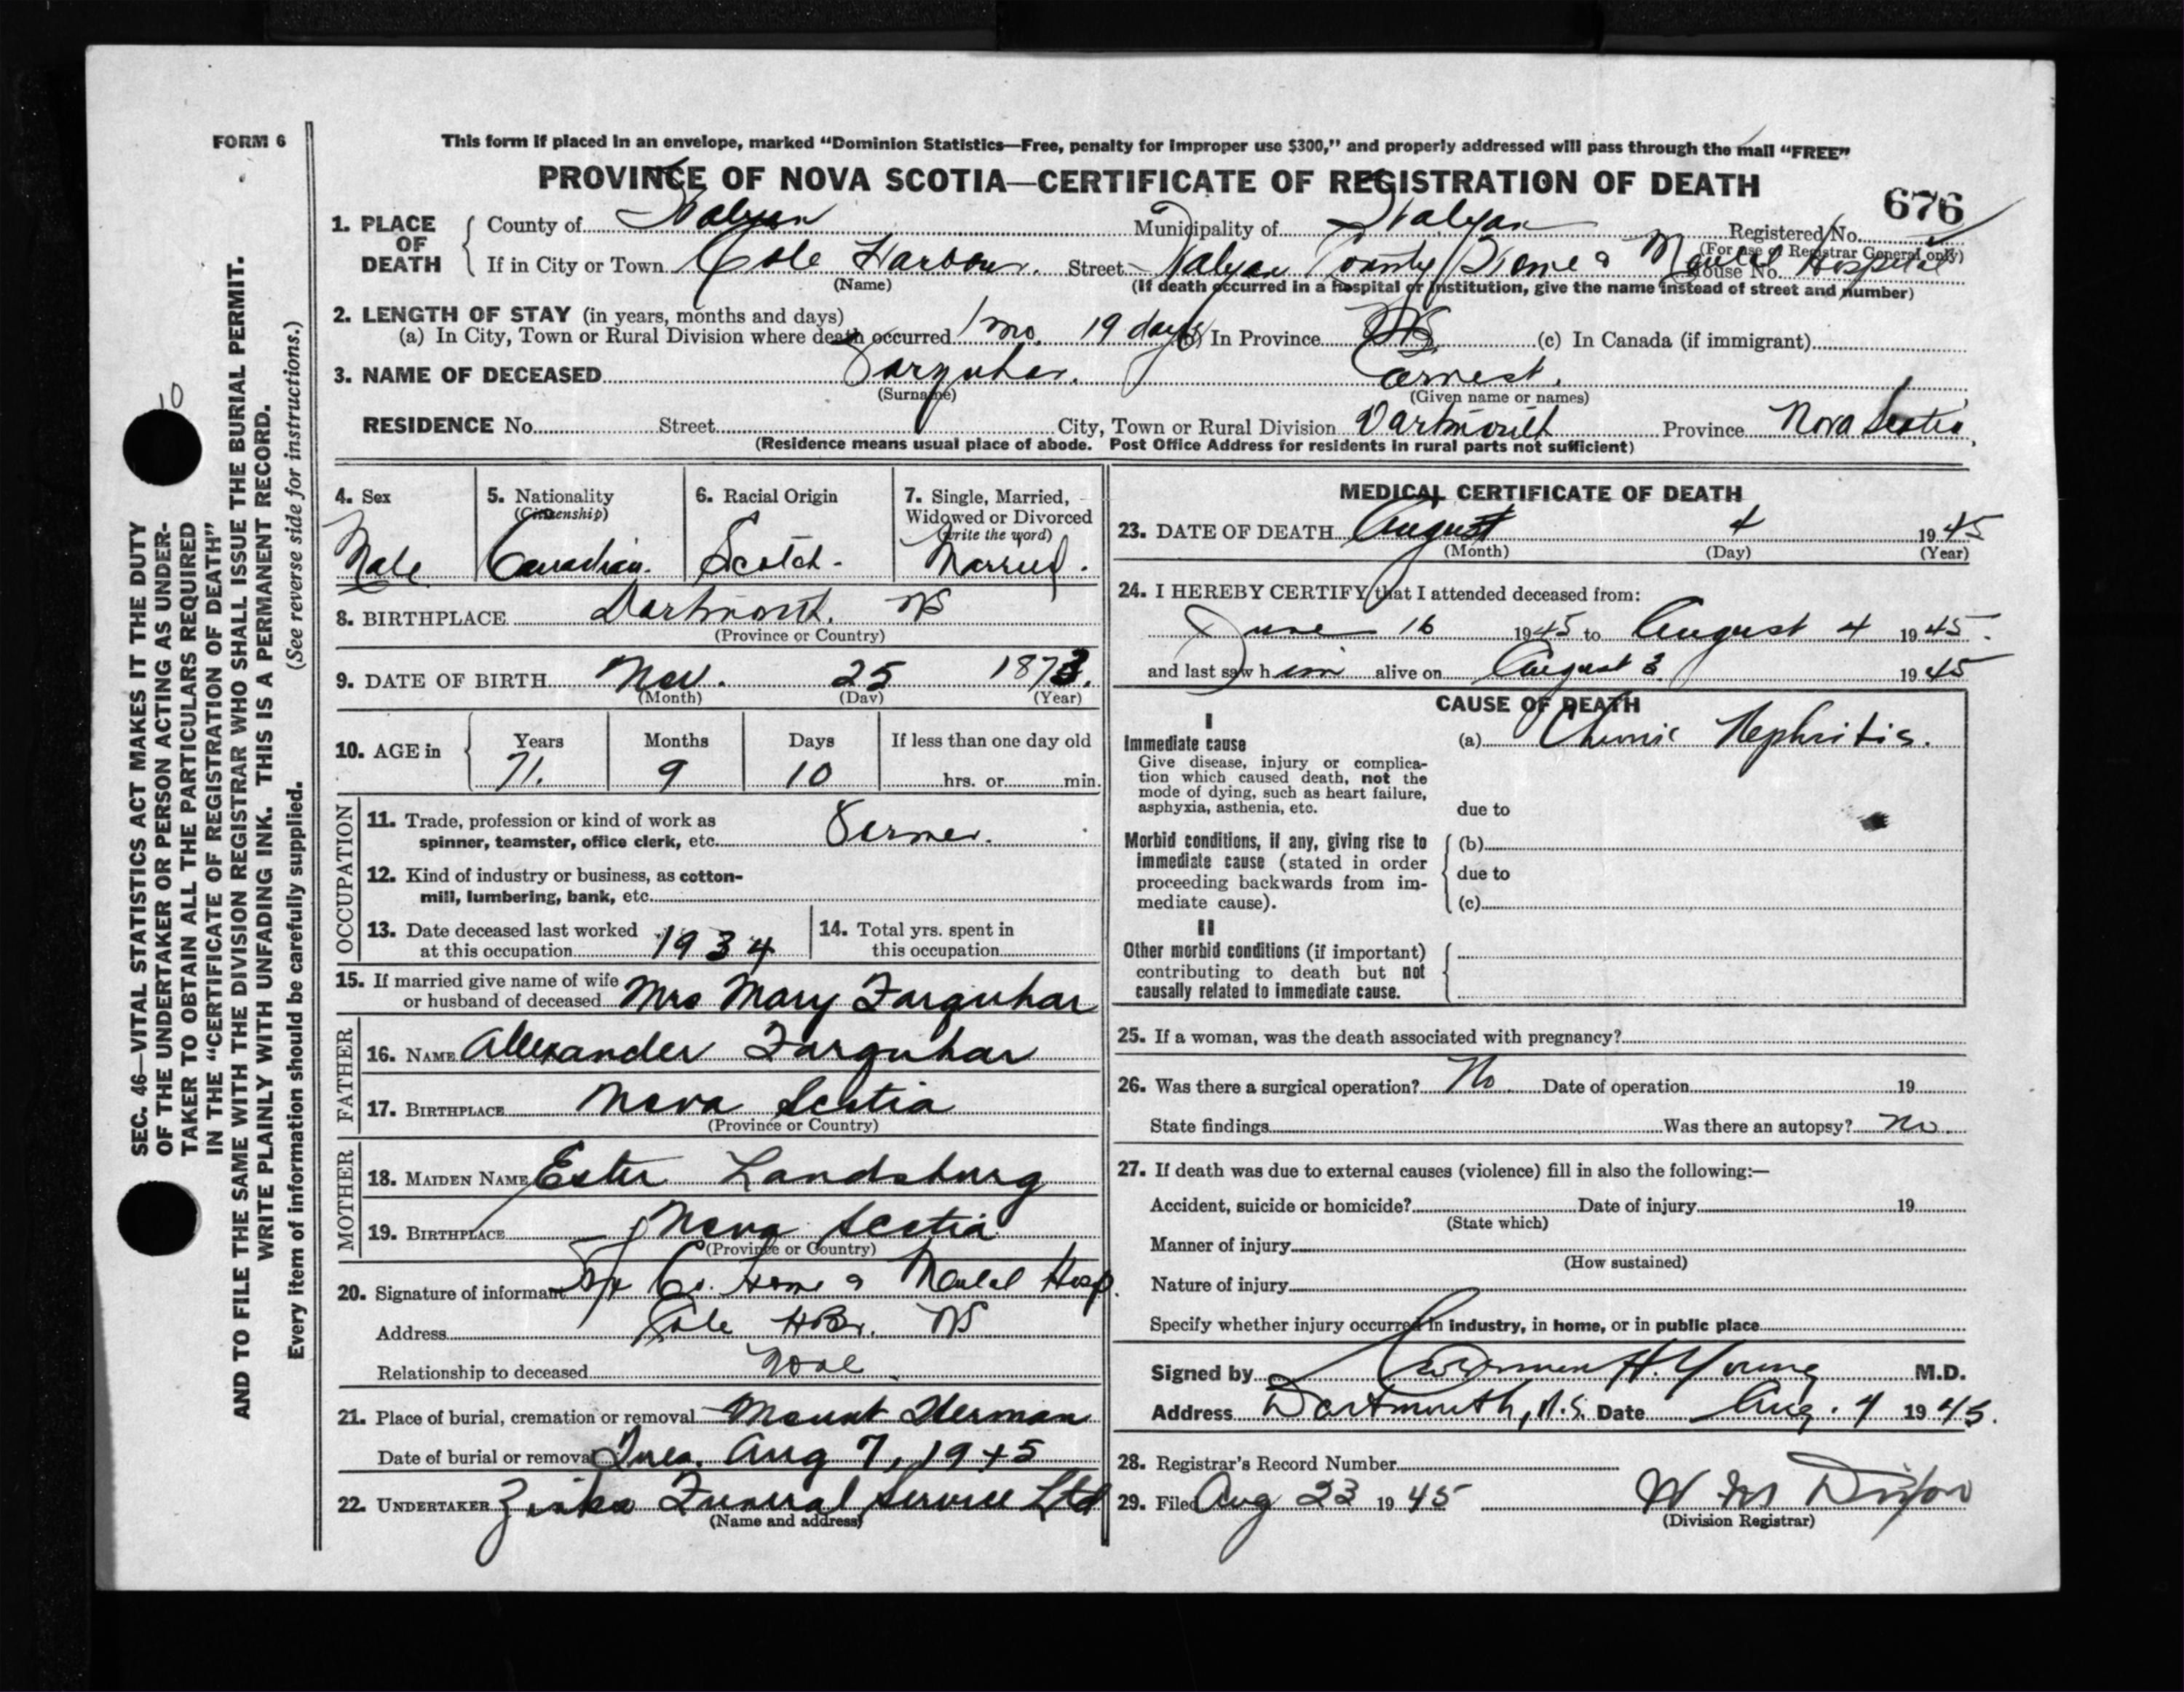 FORM 6
This form if placed in an envelope, marked "Dominion Statistics—Free, penalty for improper use $300," and properly addressed will pass through the mail "FREE"
PROVINCE OF NOVA SCOTIA—CERTIFICATE OF REGISTRATION OF DEATH
676
1. PLACE OF DEATH
County of Halifax Municipality of Halifax Registered No.
(For use of Registrar General only)
If in City or Town Cole Harbour. Street Halifax County Home & Mental Hospital House No.
(Name) (If death occurred in a hospital or institution, give the name instead of street and number)
2. LENGTH OF STAY (in years, months and days)
(a) In City, Town or Rural Division where death occurred 1 mo. 19 days (b) In Province NS. (c) In Canada (if immigrant)
3. NAME OF DECEASED Farquhar. Ernest.
(Surname) (Given name or names)
RESIDENCE No. Street City, Town or Rural Division Dartmouth Province Nova Scotia,
(Residence means usual place of abode. Post Office Address for residents in rural parts not sufficient)
4. Sex
Male
5. Nationality
(Citizenship)
Canadian.
6. Racial Origin
Scotch.
7. Single, Married,
Widowed or Divorced
(write the word)
Married.
8. BIRTHPLACE Dartmouth. NS
(Province or Country)
9. DATE OF BIRTH Nov. 25 1873.
(Month) (Day) (Year)
10. AGE in
Years Months Days If less than one day old
71. 9 10 hrs. or min.
OCCUPATION
11. Trade, profession or kind of work as
spinner, teamster, office clerk, etc. Farmer.
12. Kind of industry or business, as cotton-
mill, lumbering, bank, etc.
13. Date deceased last worked
at this occupation 1934
14. Total yrs. spent in
this occupation
15. If married give name of wife
or husband of deceased Mrs Mary Farquhar
FATHER
16. NAME Alexander Farquhar
17. BIRTHPLACE Nova Scotia
(Province or Country)
MOTHER
18. MAIDEN NAME Ester Landsburg
19. BIRTHPLACE Nova Scotia
(Province or Country)
20. Signature of informant Hfx Co. Home & Mental Hosp.
Address Cole HBr. NS
Relationship to deceased None
21. Place of burial, cremation or removal Mount Herman
Date of burial or removal Tues. Aug 7, 1945
22. UNDERTAKER Zinks Funeral Service Ltd
(Name and address)
MEDICAL CERTIFICATE OF DEATH
23. DATE OF DEATH August 4 1945
(Month) (Day) (Year)
24. I HEREBY CERTIFY that I attended deceased from:
June 16 1945 to August 4 1945.
and last saw him alive on August 3 1945
CAUSE OF DEATH
I
Immediate cause
Give disease, injury or complica-
tion which caused death, not the
mode of dying, such as heart failure,
asphyxia, asthenia, etc.
(a) Chronic Nephritis.
due to
Morbid conditions, if any, giving rise to
immediate cause (stated in order
proceeding backwards from im-
mediate cause).
(b)
due to
(c)
II
Other morbid conditions (if important)
contributing to death but not
causally related to immediate cause.
25. If a woman, was the death associated with pregnancy?
26. Was there a surgical operation? No. Date of operation 19
State findings Was there an autopsy? No.
27. If death was due to external causes (violence) fill in also the following:—
Accident, suicide or homicide? Date of injury 19
(State which)
Manner of injury
(How sustained)
Nature of injury
Specify whether injury occurred in industry, in home, or in public place
Signed by H. Young M.D.
Address Dartmouth, N.S. Date Aug. 4 1945.
28. Registrar's Record Number
29. Filed Aug 23 1945 W M Dixon
(Division Registrar)
10
SEC. 46—VITAL STATISTICS ACT MAKES IT THE DUTY
OF THE UNDERTAKER OR PERSON ACTING AS UNDER-
TAKER TO OBTAIN ALL THE PARTICULARS REQUIRED
IN THE "CERTIFICATE OF REGISTRATION OF DEATH"
AND TO FILE THE SAME WITH THE DIVISION REGISTRAR WHO SHALL ISSUE THE BURIAL PERMIT.
WRITE PLAINLY WITH UNFADING INK. THIS IS A PERMANENT RECORD.
Every item of information should be carefully supplied. (See reverse side for instructions.)